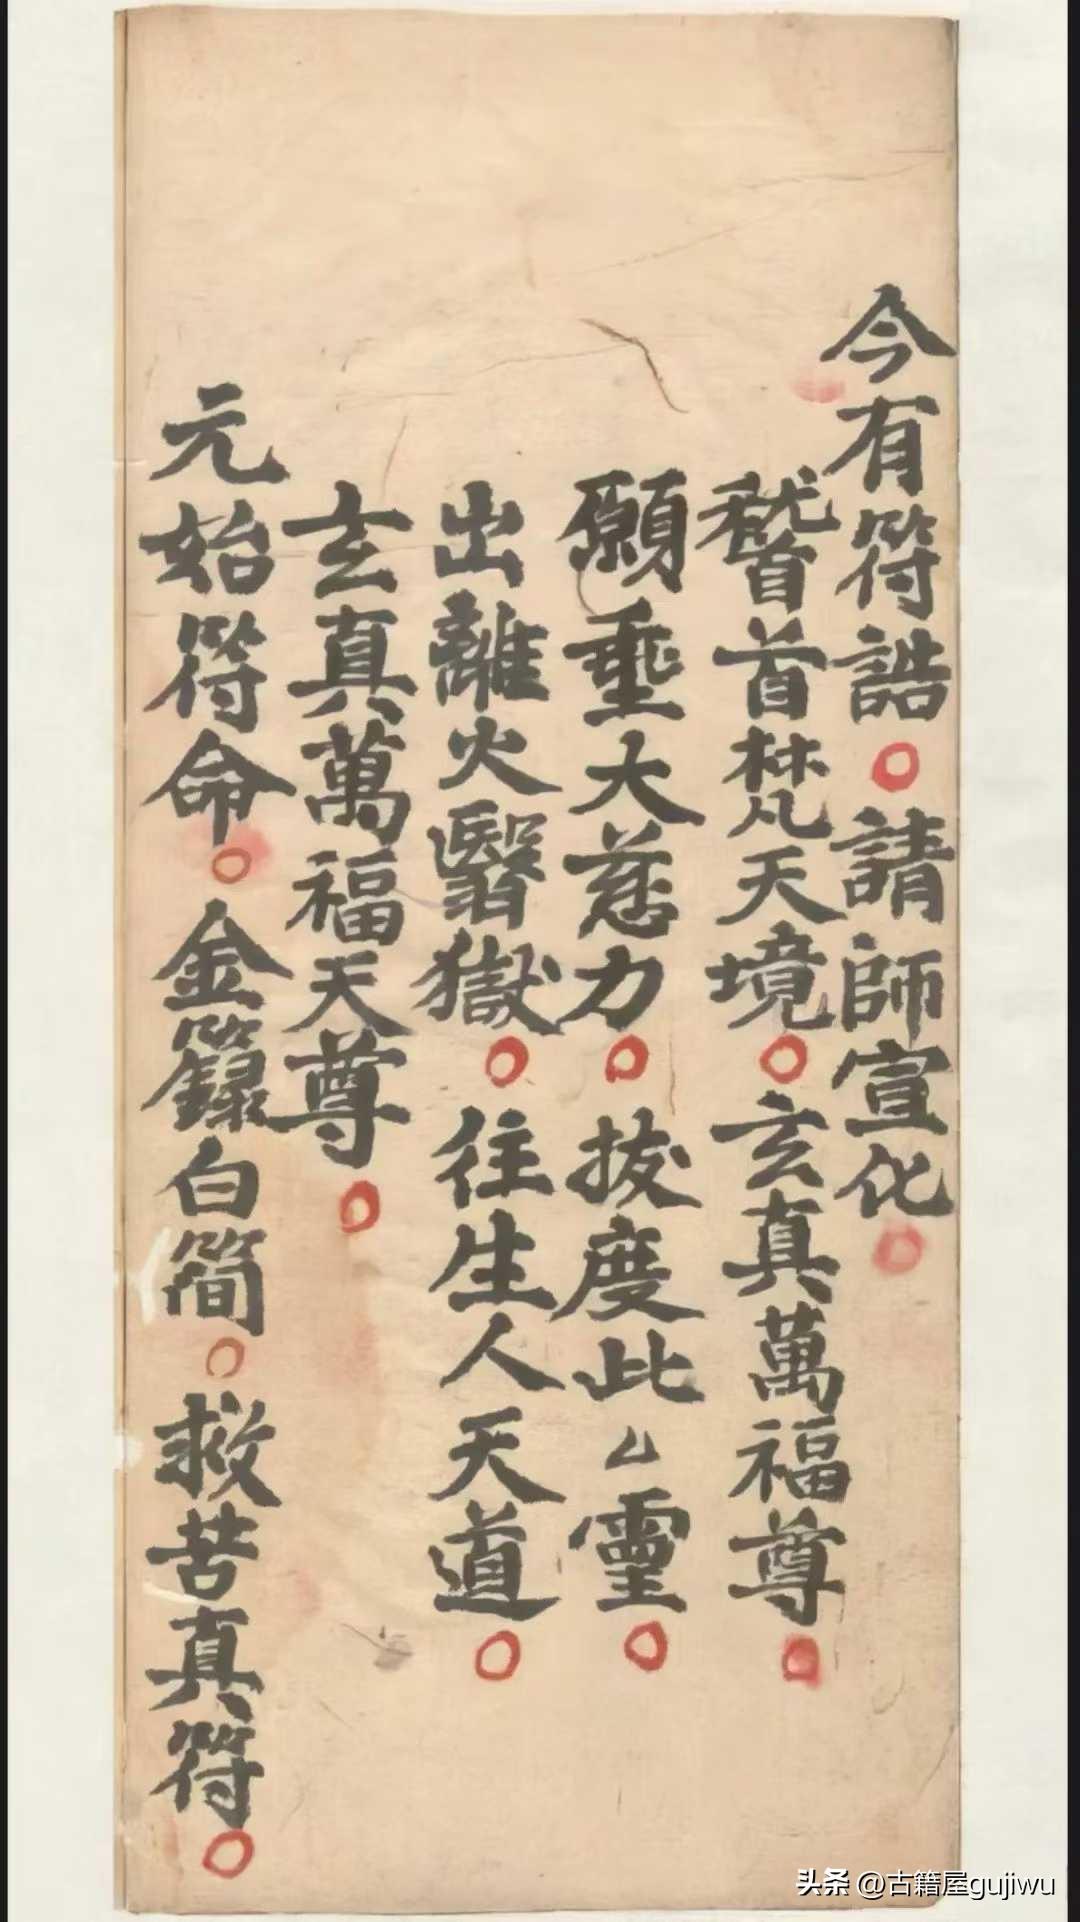 今有符誥○請師宣化○
稽首梵天境○玄真萬福尊○
願垂大慈力○拔度此厶靈○
出離火翳獄○往生人天道○
玄真萬福天尊○
元始符命○金籙白簡○救苦真符○
头条 @古籍屋gujiwu